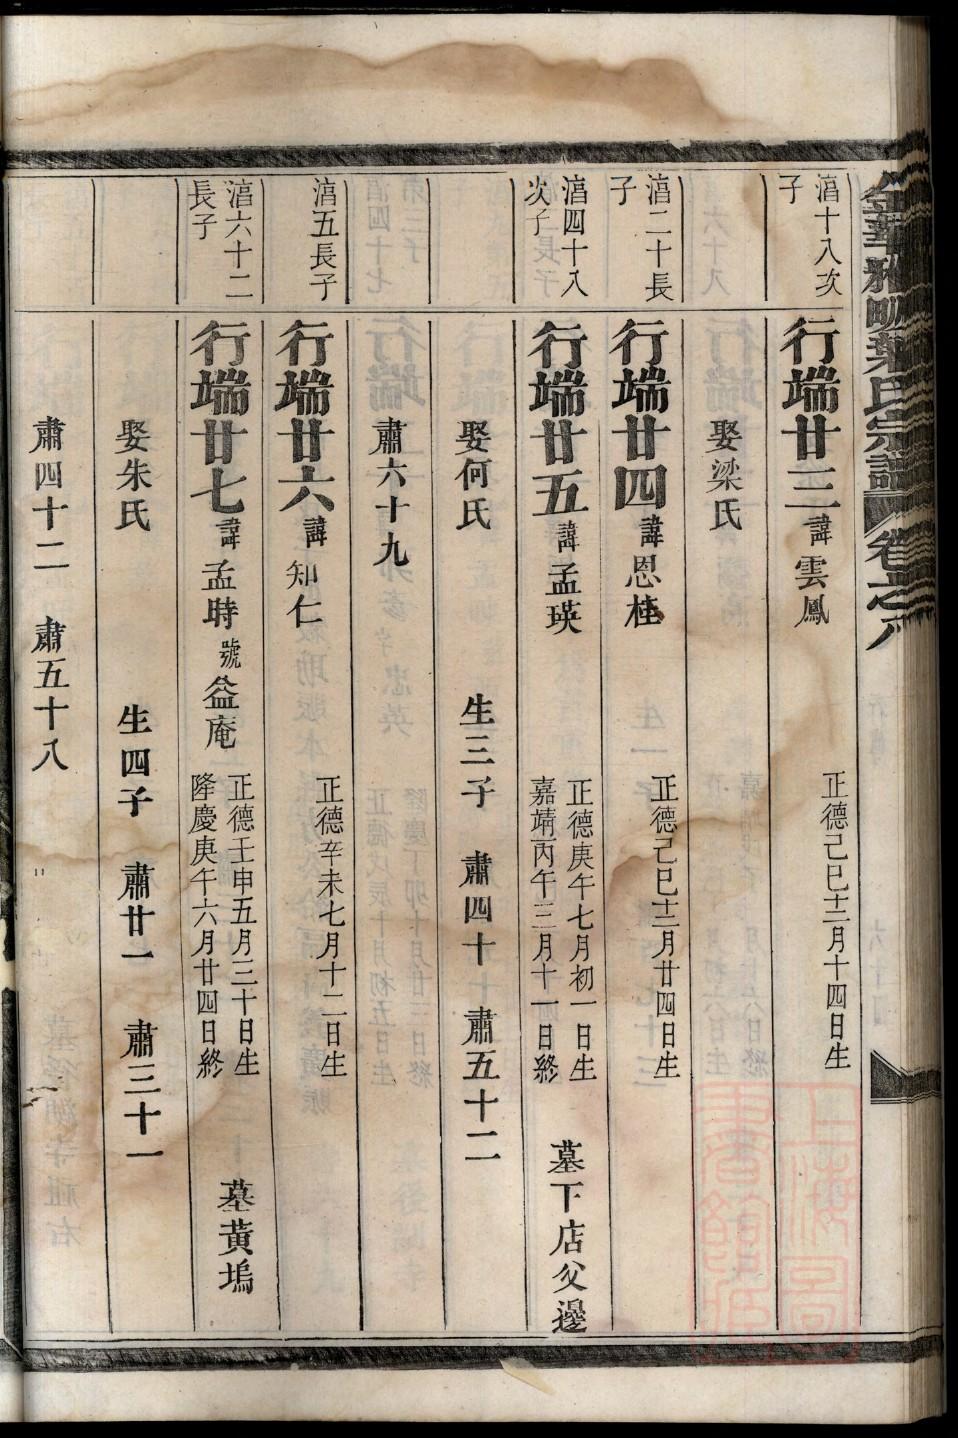 金華雅畈葉氏宗譜 卷之八
湻十八次
子
行端廿三 諱雲鳳 正德己巳十二月十四日生
娶梁氏
湻二十長
子
行端廿四 諱恩桂 正德己巳十二月廿四日生
湻四十八
次子
行端廿五 諱孟瑛 正德庚午七月初一日生
嘉靖丙午三月十一日終
墓下店父邊
娶何氏 生三子 肅四十 肅五十二
肅六十九
湻五長子
行端廿六 諱知仁 正德辛未七月十二日生
湻六十二
長子
行端廿七 諱孟時 號益庵 正德壬申五月三十日生
隆慶庚午六月廿四日終
墓黃塢
娶朱氏 生四子 肅廿一 肅三十一
肅四十二 肅五十八
上海圖
書館藏